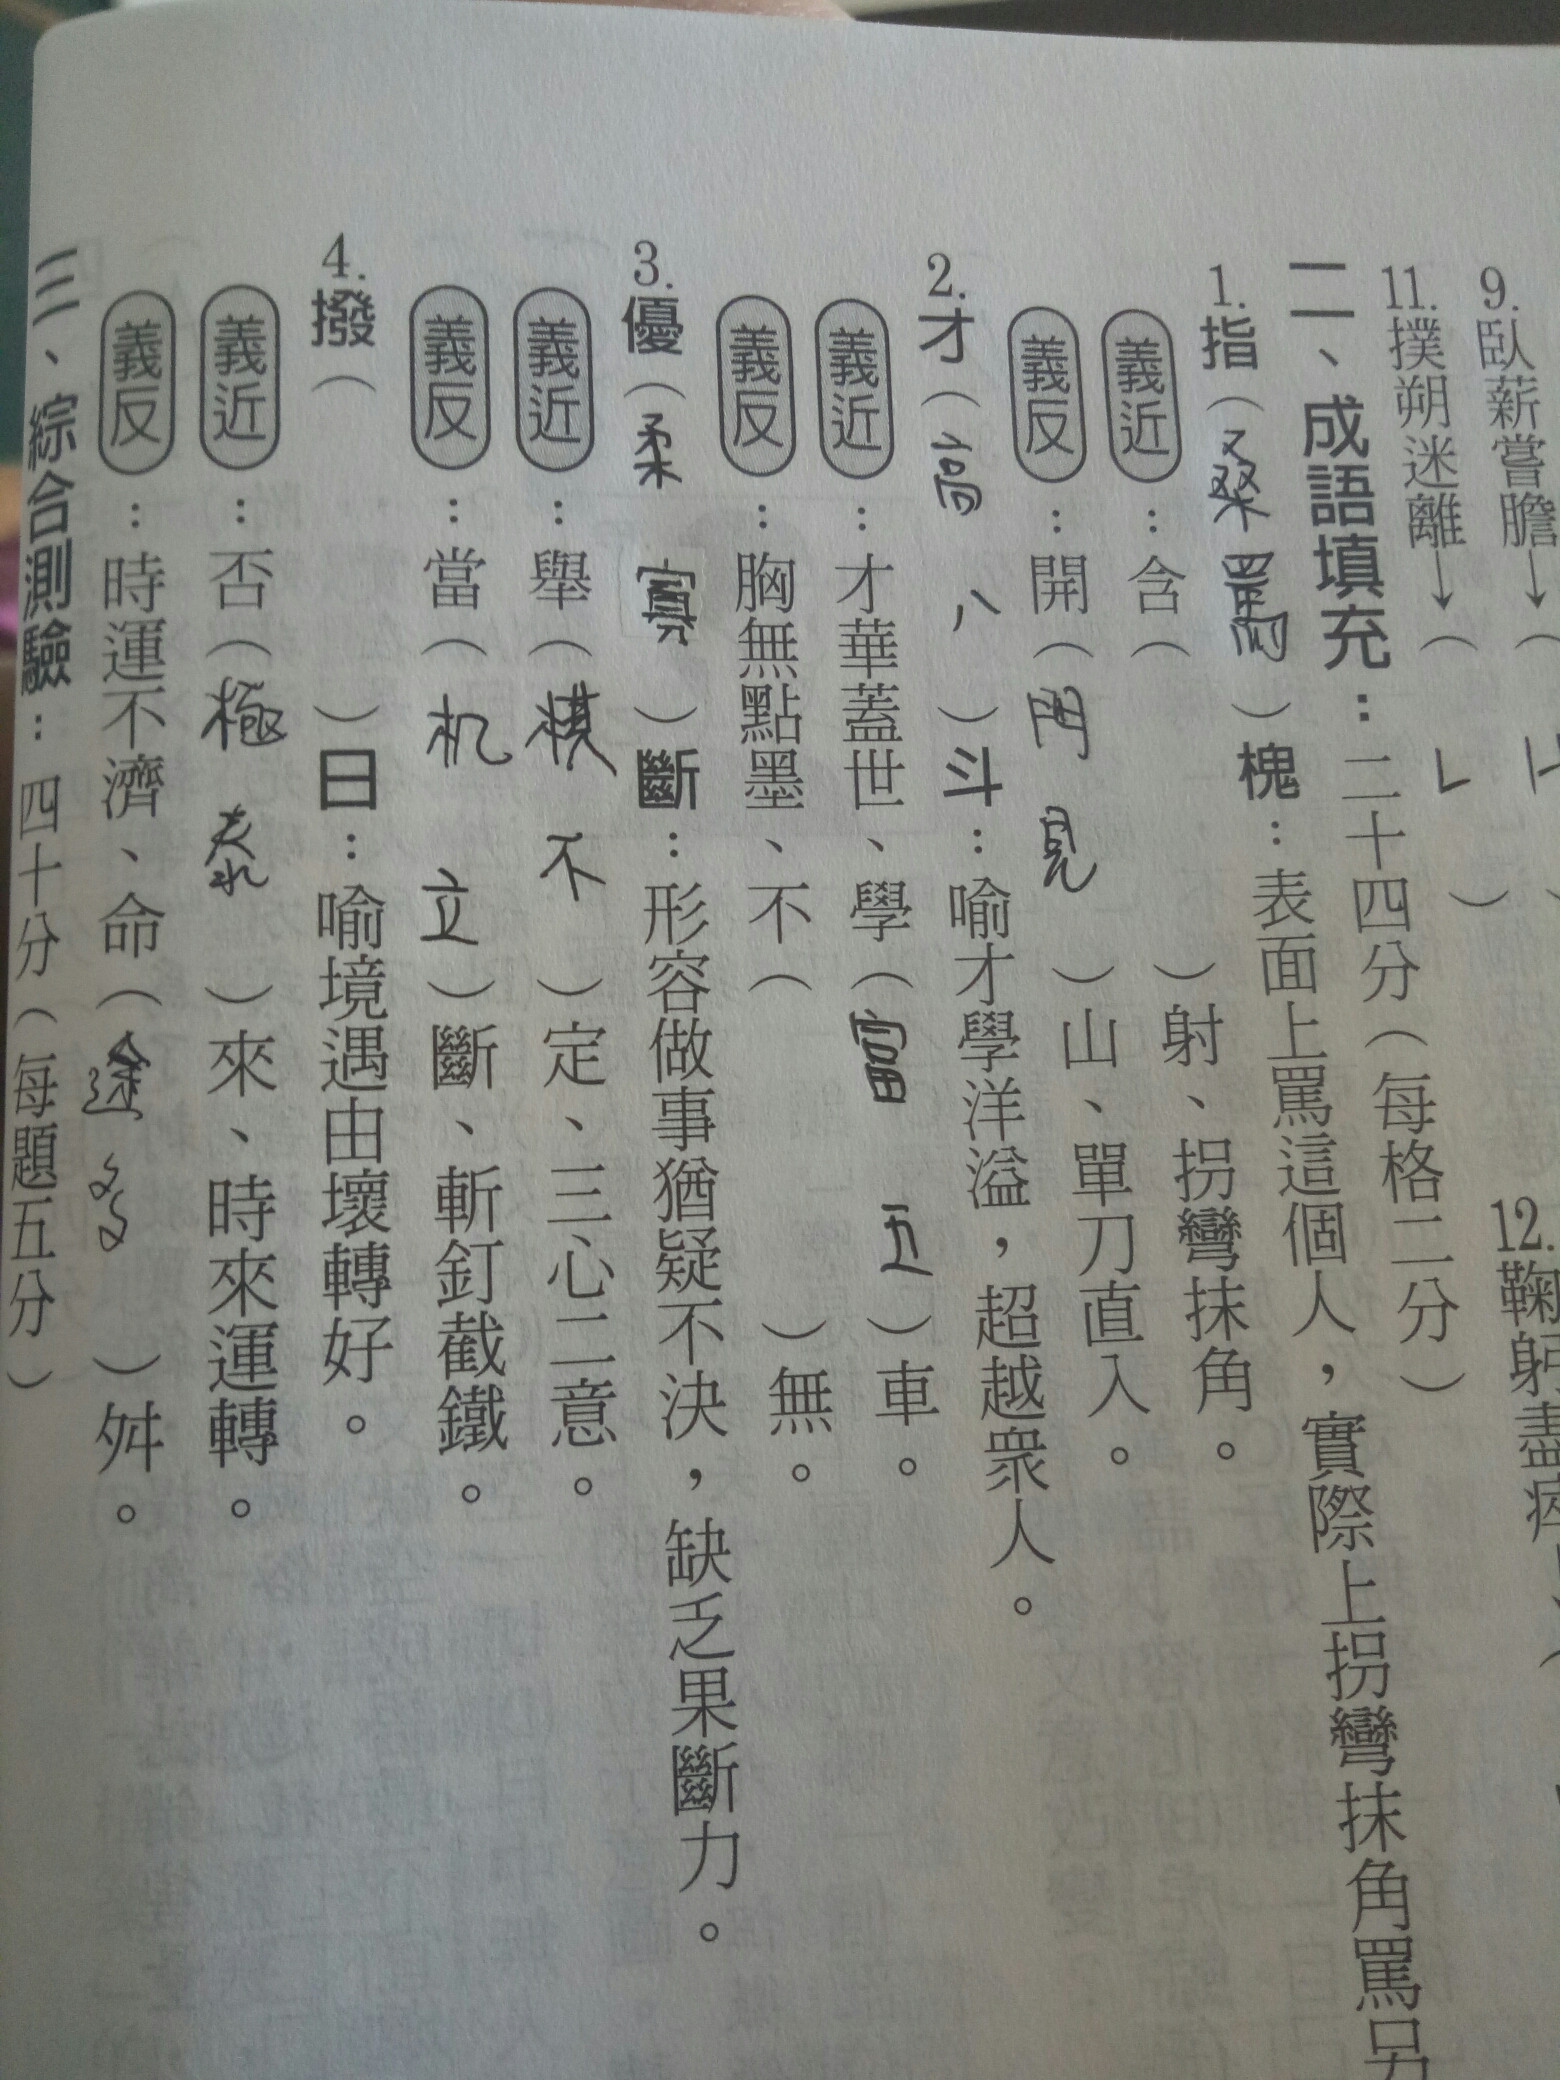 9.臥薪嘗膽→（
12.鞠躬盡瘁
11.撲朔迷離→（ㄴ）
二、成語填充：二十四分（每格二分）
1.指（桑罵）槐：表面上罵這個人，實際上拐彎抹角罵另
義近：含（ ）射、拐彎抹角。
義反：開（門見）山、單刀直入。
2.才（高八）斗：喻才學洋溢，超越眾人。
義近：才華蓋世、學（富五）車。
義反：胸無點墨、不（ ）無。
3.優（柔寡）斷：形容做事猶疑不決，缺乏果斷力。
義近：舉（棋不）定、三心二意。
義反：當（机立）斷、斬釘截鐵。
4.撥（ ）日：喻境遇由壞轉好。
義近：否（極泰）來、時來運轉。
義反：時運不濟、命（途多）舛。
三、綜合測驗：四十分（每題五分）